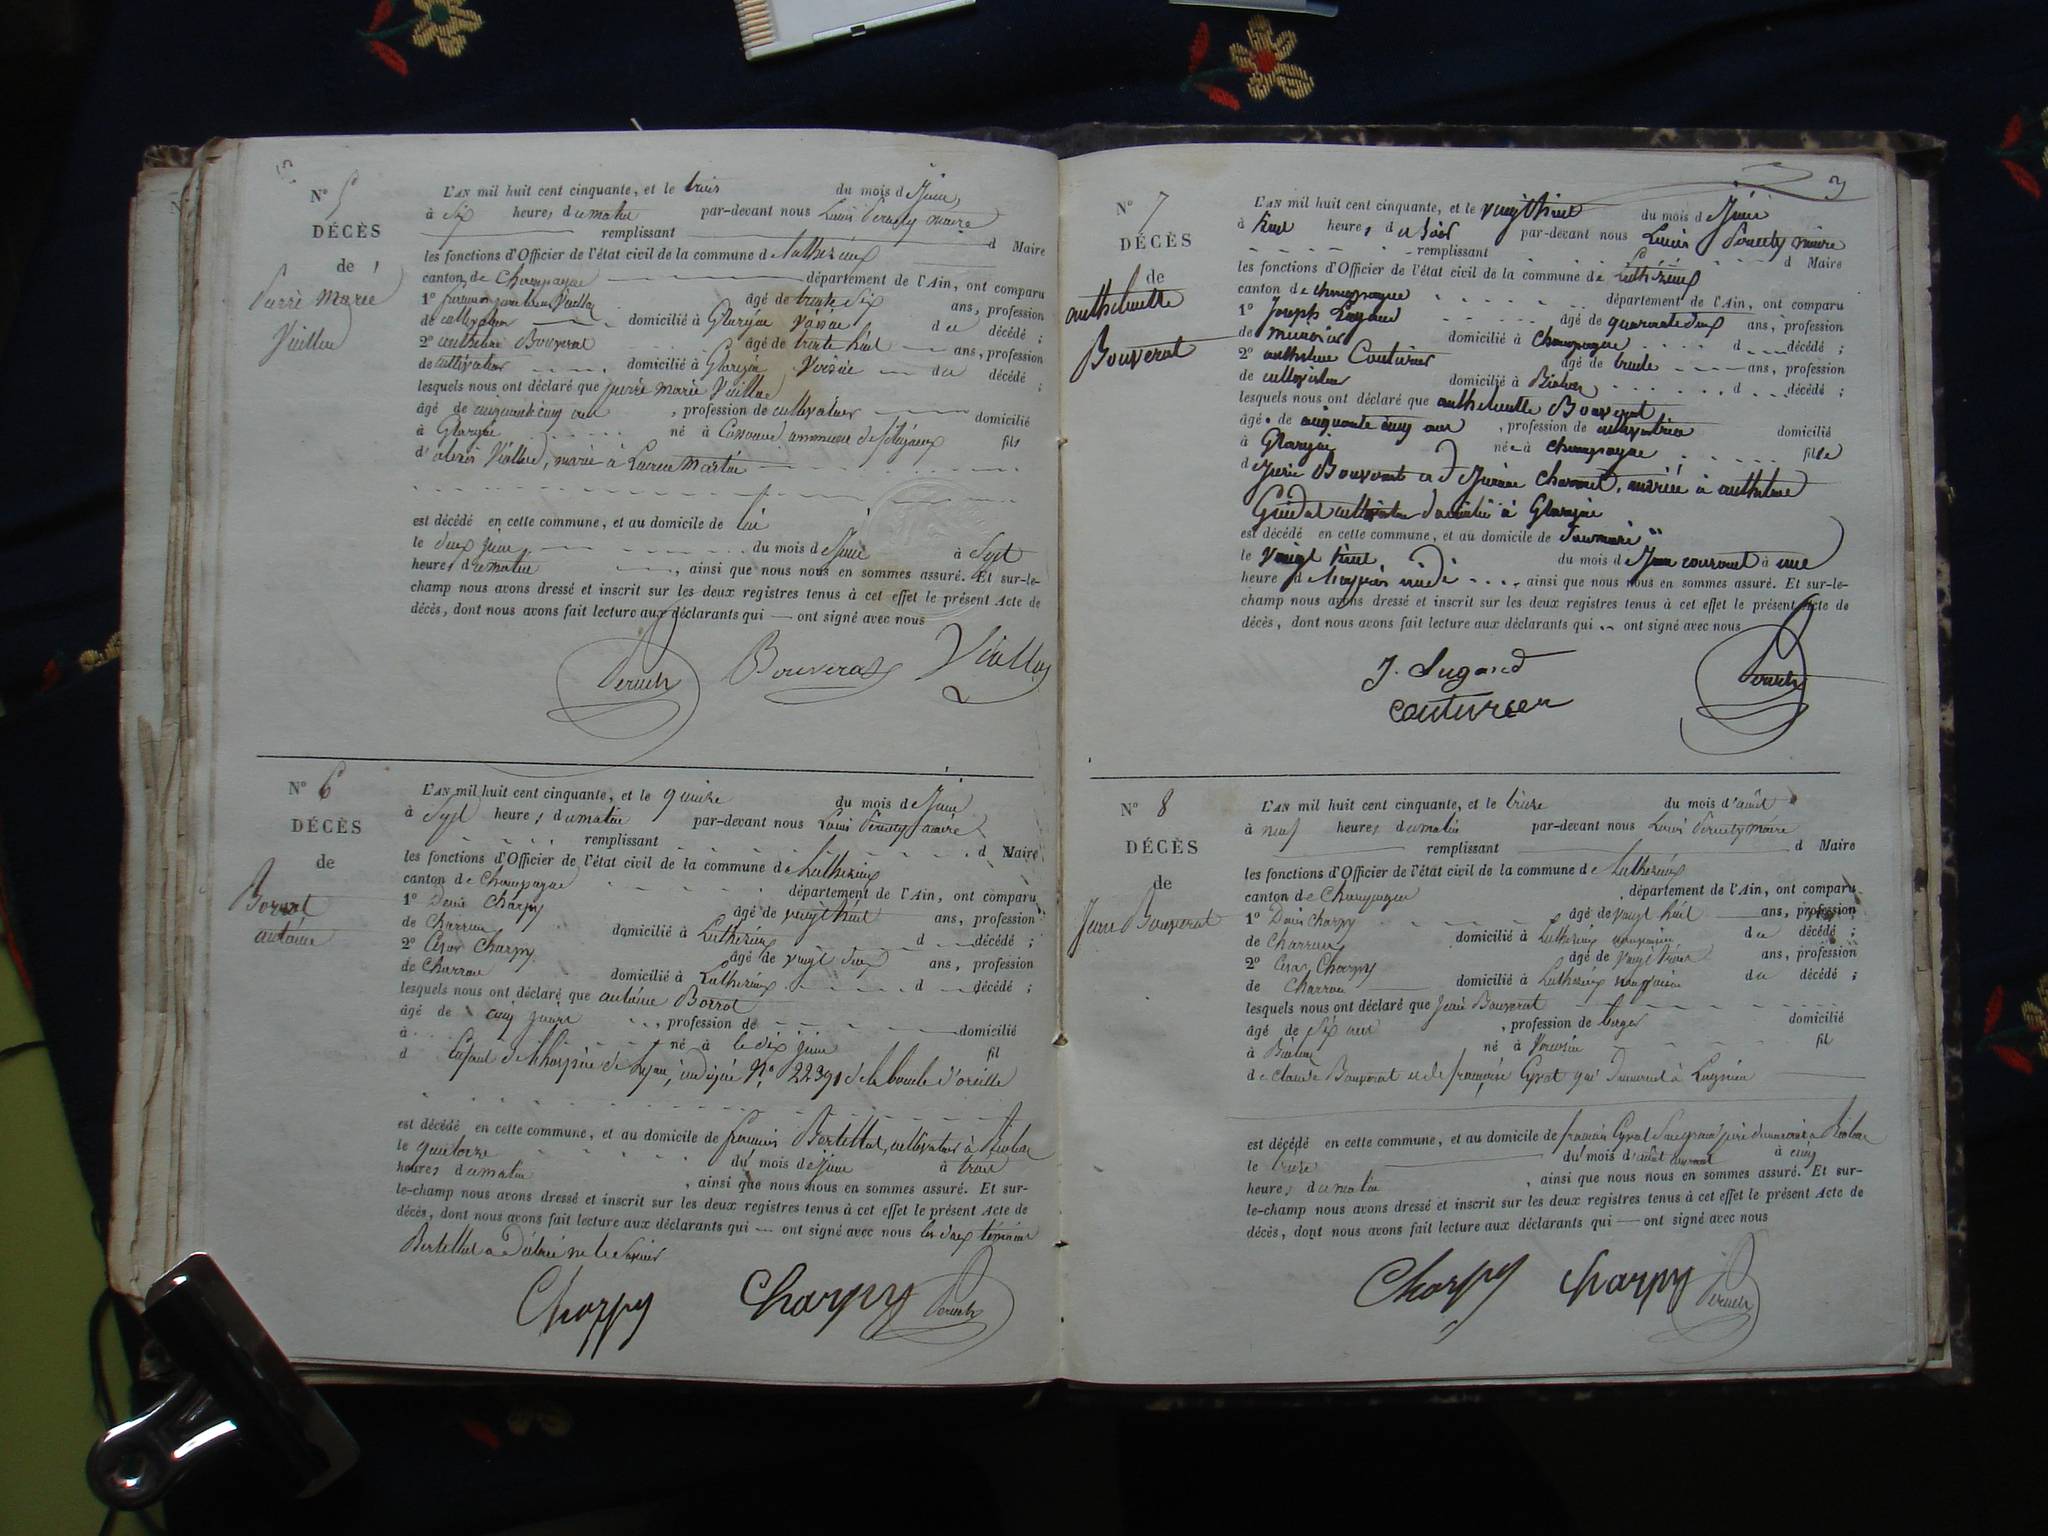 N° 5
DÉCÈS
de
Pierre Marie
Vuillou
L'AN mil huit cent cinquante, et le trois du mois d Juin
à six heures du matin par-devant nous Louis maire
remplissant d Maire
les fonctions d'Officier de l'état civil de la commune de Luthézieux
canton de Champagne département de l'Ain, ont comparu
1° âgé de trente six ans, profession
de cultivateur domicilié à d du décédé ;
2° Bouverat âgé de trente huit ans, profession
de cultivateur domicilié à du décédé ;
lesquels nous ont déclaré que pierre marie
âgé de cinquante cinq ans , profession de cultivateur domicilié
à né à commune de fils
d'alexis marié à
est décédé en cette commune, et au domicile de lui
le deux juin du mois d Juin à Sept
heures du matin , ainsi que nous nous en sommes assuré. Et sur-le-
champ nous avons dressé et inscrit sur les deux registres tenus à cet effet le présent Acte de
décès, dont nous avons fait lecture aux déclarants qui — ont signé avec nous
Bouverat
N° 6
DÉCÈS
de
Borrat
antoine
L'AN mil huit cent cinquante, et le quinze du mois d Juin
à Sept heures du matin par-devant nous Louis maire
remplissant d Maire
les fonctions d'Officier de l'état civil de la commune de Luthézieux
canton de Champagne département de l'Ain, ont comparu
1° Denis Charpy âgé de vingt huit ans, profession
de Charron domicilié à Luthézieux d décédé ;
2° César Charpy âgé de vingt deux ans, profession
de Charron domicilié à Luthézieux d décédé ;
lesquels nous ont déclaré que antoine Borrat
âgé de cinq jours , profession de domicilié
à né à le dix juin fil
d Enfant de l'hospice de Lyon, N° 22391 de la boucle d'oreille
est décédé en cette commune, et au domicile de françois Bertettet, cultivateur à
le quatorze du mois d Juin à trois
heures du matin , ainsi que nous nous en sommes assuré. Et sur-
le-champ nous avons dressé et inscrit sur les deux registres tenus à cet effet le présent Acte de
décès, dont nous avons fait lecture aux déclarants qui — ont signé avec nous les deux témoins
Charpy Charpy
3
N° 7
DÉCÈS
de
anthelmette
Bouverat
L'AN mil huit cent cinquante, et le vingt huit du mois d Juin
à huit heures du Soir par-devant nous Louis maire
remplissant d Maire
les fonctions d'Officier de l'état civil de la commune de Luthézieux
canton de champagne département de l'Ain, ont comparu
1° Joseph âgé de quarante deux ans, profession
de menuisier domicilié à Champagne d décédé ;
2° anthelme Couturier âgé de trente ans, profession
de cultivateur domicilié à d décédé ;
lesquels nous ont déclaré que anthelmette Bouverat
âgée de cinquante cinq ans , profession de cultivatrice domicilié
à née à champagne fille
d Bouverat et d mariée à anthelme
cultivateur domicilié à
est décédé en cette commune, et au domicile de Son mari
le Vingt huit du mois d Juin courant à une
heure d'après midi , ainsi que nous nous en sommes assuré. Et sur-le-
champ nous avons dressé et inscrit sur les deux registres tenus à cet effet le présent Acte de
décès, dont nous avons fait lecture aux déclarants qui — ont signé avec nous
J. Lugand
couturier
N° 8
DÉCÈS
de
Jean Bouverat
L'AN mil huit cent cinquante, et le treize du mois d'août
à neuf heures du matin par-devant nous Louis maire
remplissant d Maire
les fonctions d'Officier de l'état civil de la commune de Luthézieux
canton de Champagne département de l'Ain, ont comparu
1° Denis Charpy âgé de vingt huit ans, profession
de Charron domicilié à Luthézieux du décédé ;
2° César Charpy âgé de vingt trois ans, profession
de Charron domicilié à Luthézieux du décédé ;
lesquels nous ont déclaré que Jean Bouverat
âgé de Six ans , profession de berger domicilié
à né à fil
de Claude Bouverat et de françoise
est décédé en cette commune, et au domicile de françois
le treize du mois d'août courant à cinq
heures du matin , ainsi que nous nous en sommes assuré. Et sur-
le-champ nous avons dressé et inscrit sur les deux registres tenus à cet effet le présent Acte de
décès, dont nous avons fait lecture aux déclarants qui — ont signé avec nous
Charpy Charpy